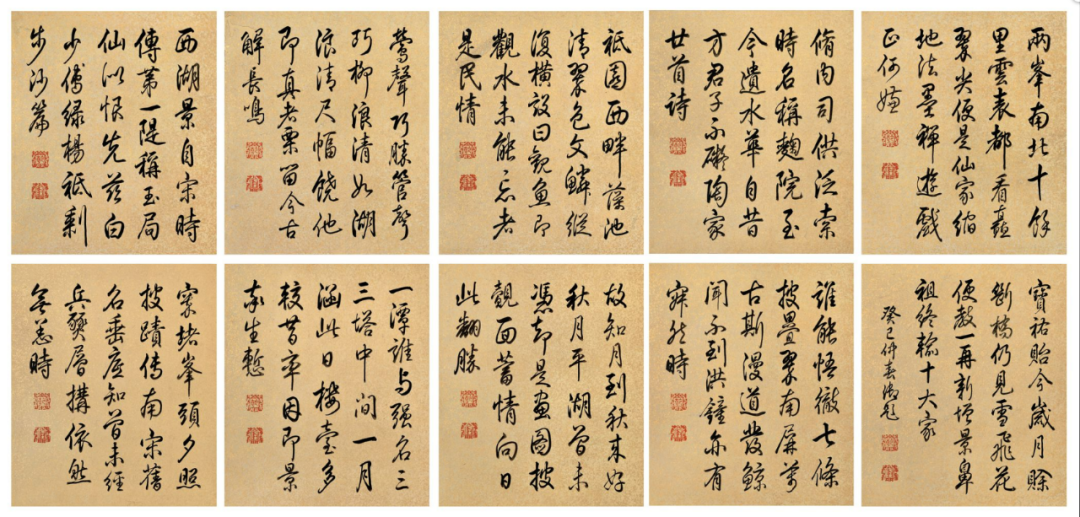 西湖景自宋時
傳第一隄稱玉局
仙以恨先茲白
少傅綠楊祇剩
步沙篇
鶯聲巧勝管聲
巧柳浪清如湖
浪清尺幅饒他
即真者栗留今古
解長鳴
祇園西畔藻池
清翠色文鱗縱
復橫設曰觀魚即
觀水未能忘者
是民情
脩內司供泛索
時名稱麴院至
今遺水華自昔
方君子不礙陶家
廿首詩
兩峯南北十餘
里雲表都看矗
翠尖便是仙家縮
地法墨禪遊戲
正何嫌
窣堵峯頭夕照
披蹟傳南宋舊
名垂應知曾未經
兵燹層構依然
無恙時
一潭誰与強名三
三塔中間一月
涵此日樓臺多
較昔率因即景
奈生慙
故知月到秋來好
秋月平湖曾未
憑却是畫圖披
覿面蓄情向日
此翻勝
誰能悟徹七條
披疊翠南屏萬
古斯漫道發鯨
聞不到洪鐘亦有
寂然時
寶祐貽今歲月賒
斷橋仍見雪飛花
便教一再新增景鼻
祖終輸十大家
癸巳仲春御題